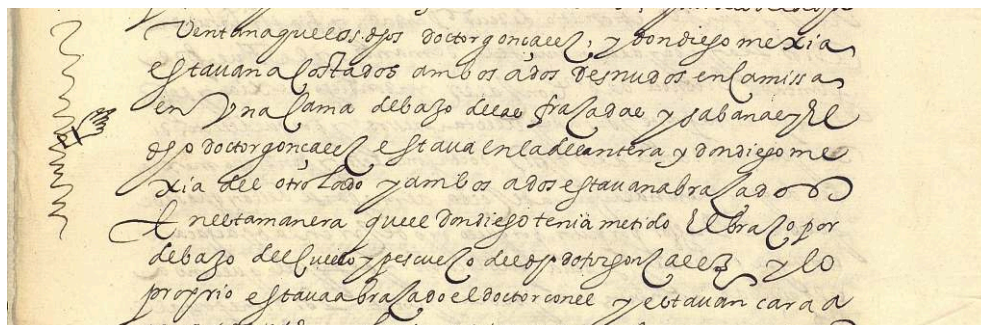 Ventana que los dhos doctor gonçalez, y don diego mexia
estavan acostados ambos ados desnudos en camissa
en Vna cama debaxo de las fraçadas y sabanas y El
dho doctor gonçalez estava en la delantera y don diego me
xia del otro lado y ambos ados estauan abraçados
En esta manera que el don diego tenia metido El braço por
debaxo del cuello y pescueço del dho dotor gonçalez y lo
proprio estaua abraçado el doctor con el y estauan cara a